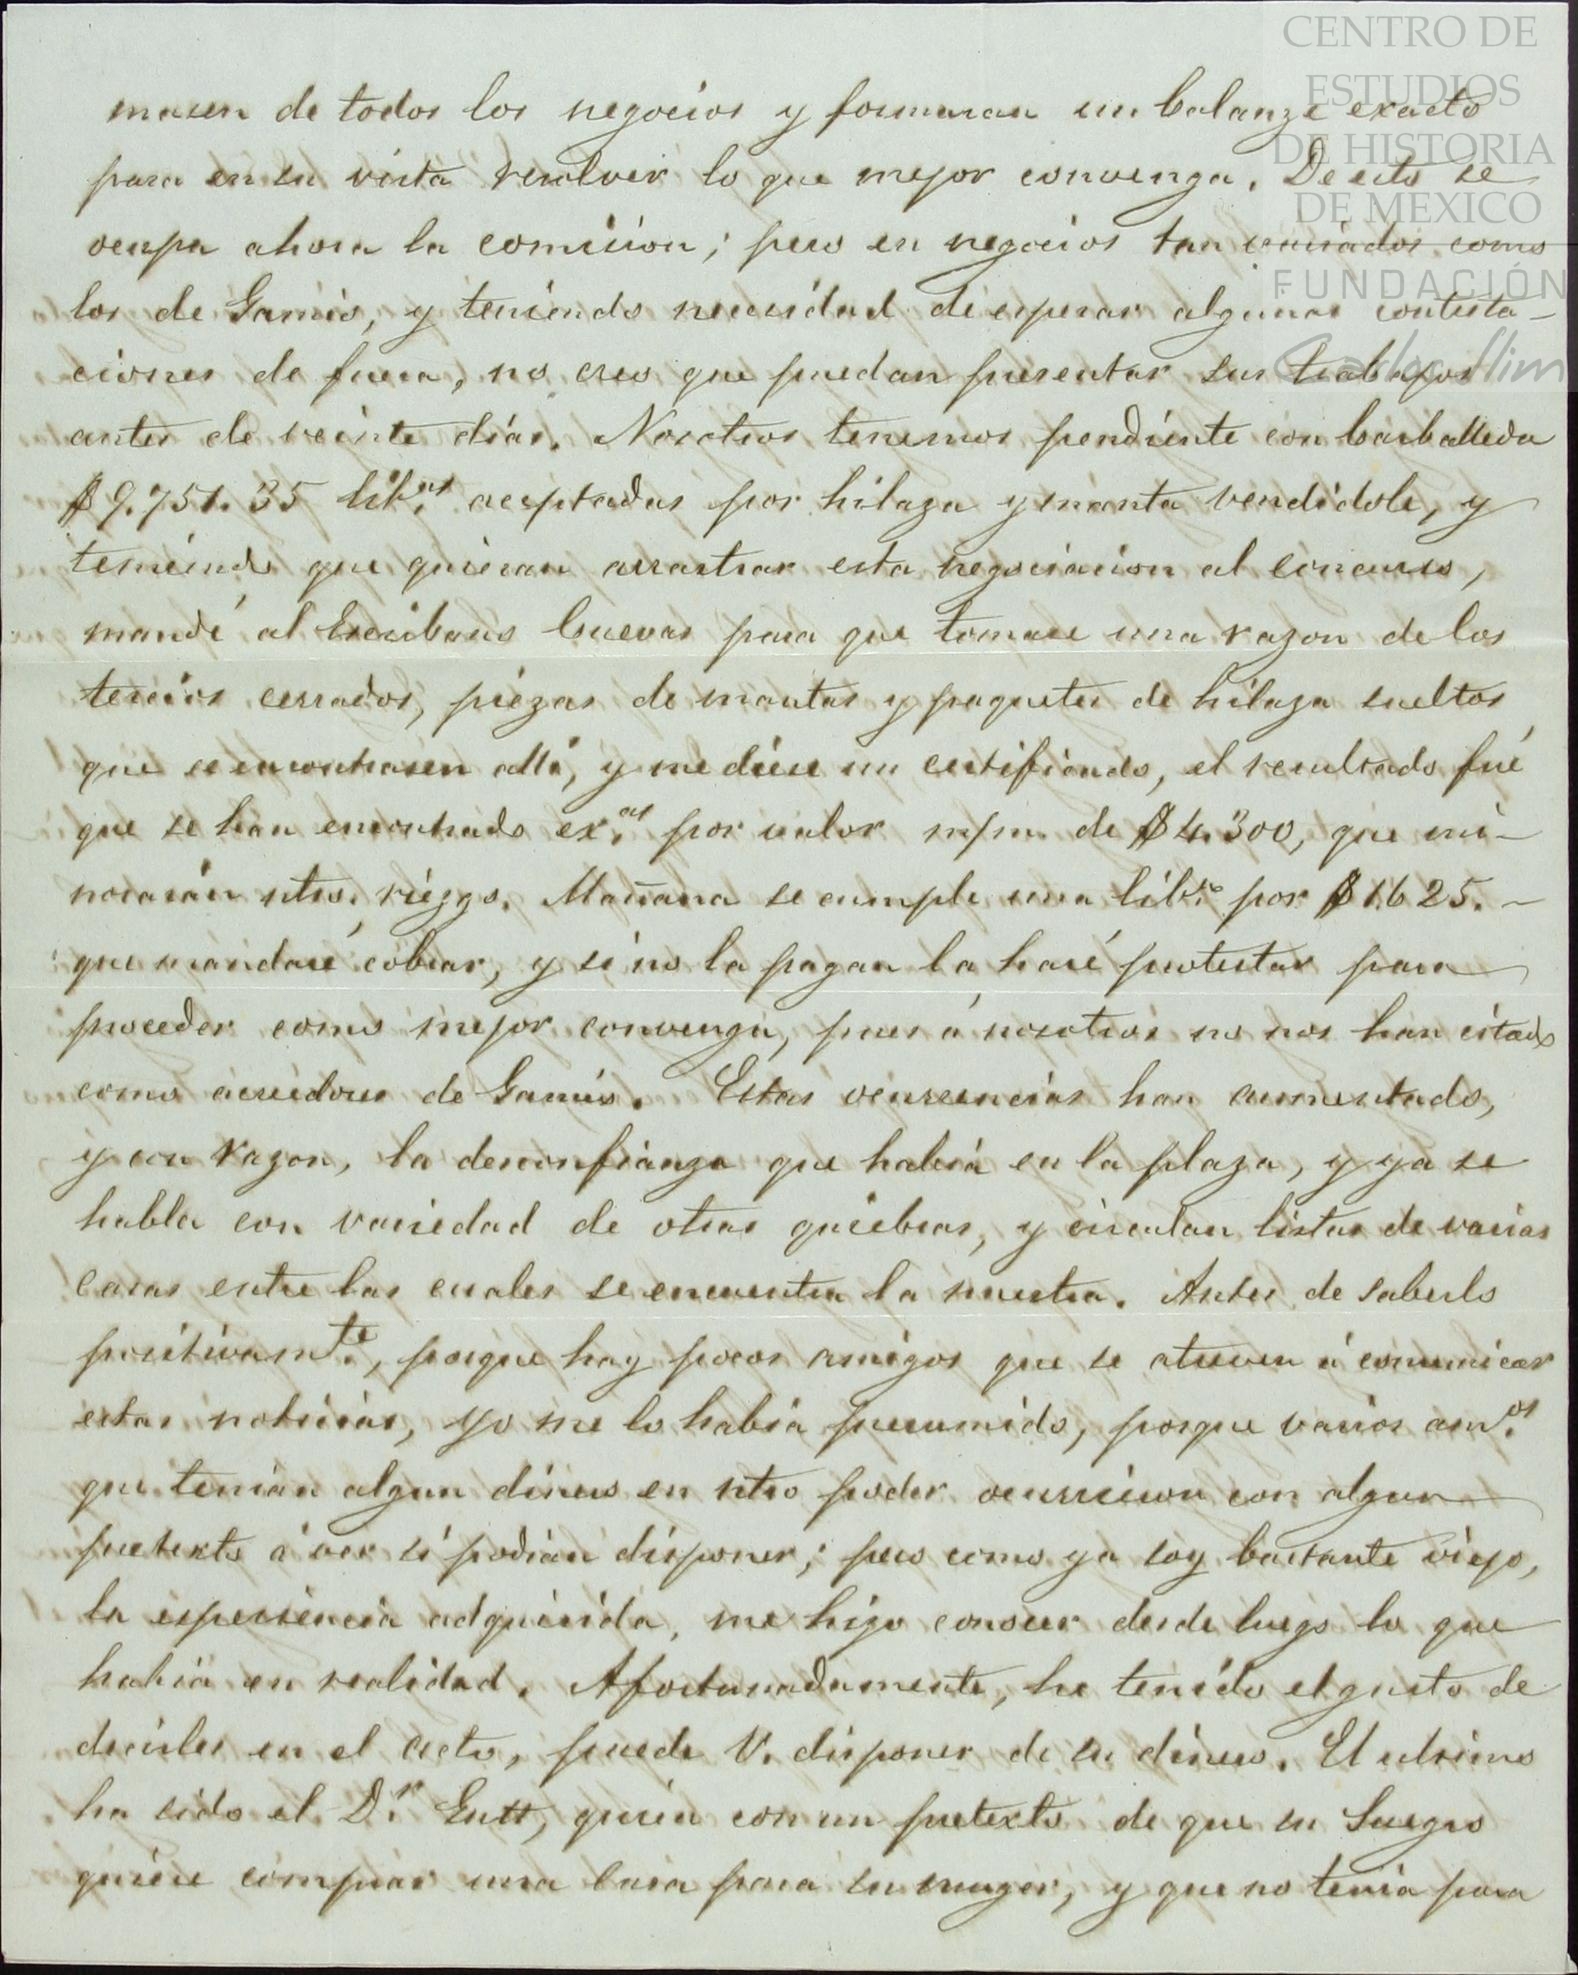 CENTRO DE
ESTUDIOS
DE HISTORIA
DE MEXICO
FUNDACIÓN
Carlos Slim
masen de todos los negocios y formaran un balanze exacto
para en su vista resolver lo que mejor convenga. De esto se
ocupa ahora la comision; pero en negocios tan variados como
los de Gamio, y teniendo necesidad de esperar algunas contesta-
ciones de fuera, no creo que puedan presentar sus trabajos
antes de veinte dias. Nosotros tenemos pendiente con Carballeda
$9.751.35 lib.as aceptadas por hilaza y manta vendidole, y
temiendo que quieran arrastrar esta negociacion al concurso,
mandé al Escribano Cuevas para que tomase una razon de los
tercios cerrados, piezas de mantas y paquetes de hilaza sueltos
que se encontrasen allí, y me diese un certificado, el resultado fué
que se han encontrado ex.as por valor m/m. de $4.300, que mi-
norarán ntros. riezgo. Mañana se cumple una lib.za por $1.625.-
que mandaré cobrar, y si no la pagan la haré protestar para
proceder como mejor convenga, pues á nosotros no nos han citado
como acredores de Gamio. Estas ocurrencias han aumentado,
y con razon, la desconfianza que habia en la plaza, y ya se
habla con variedad de otras quiebras, y circulan listas de varias
casas entre las cuales se encuentra la nuestra. Antes de saberlo
positivam.te, porque hay pocos amigos que se atreven á comunicar
estas noticias, yo me lo habia presumido, porque varios am.os
que tenian algun dinero en ntro poder ocurrieron con algun
pretexto á ver si podian disponer; pero como ya soy bastante viejo,
la esperiencia adquirida, me hizo conocer desde luego lo que
habia en realidad. Afortunadamente, he tenido el gusto de
decirles en el acto, puede V. disponer de su dinero. El ultimo
ha sido el D.r Gutt, quien con un pretexto de que su Suegro
quiere comprar una casa para su muger, y que no tenia para